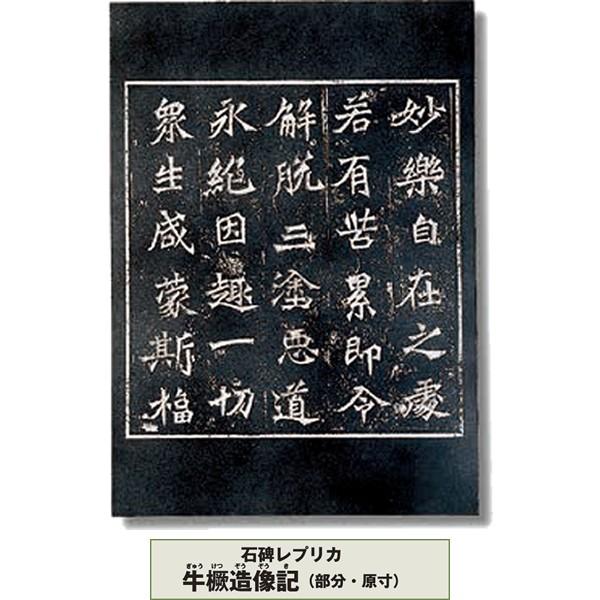 妙樂自在之處
若有苦累即令
解脱三塗惡道
永絶因趣一切
衆生咸蒙斯福
石碑レプリカ
ぎゅう けつ ぞう ぞう き
牛橛造像記（部分・原寸）